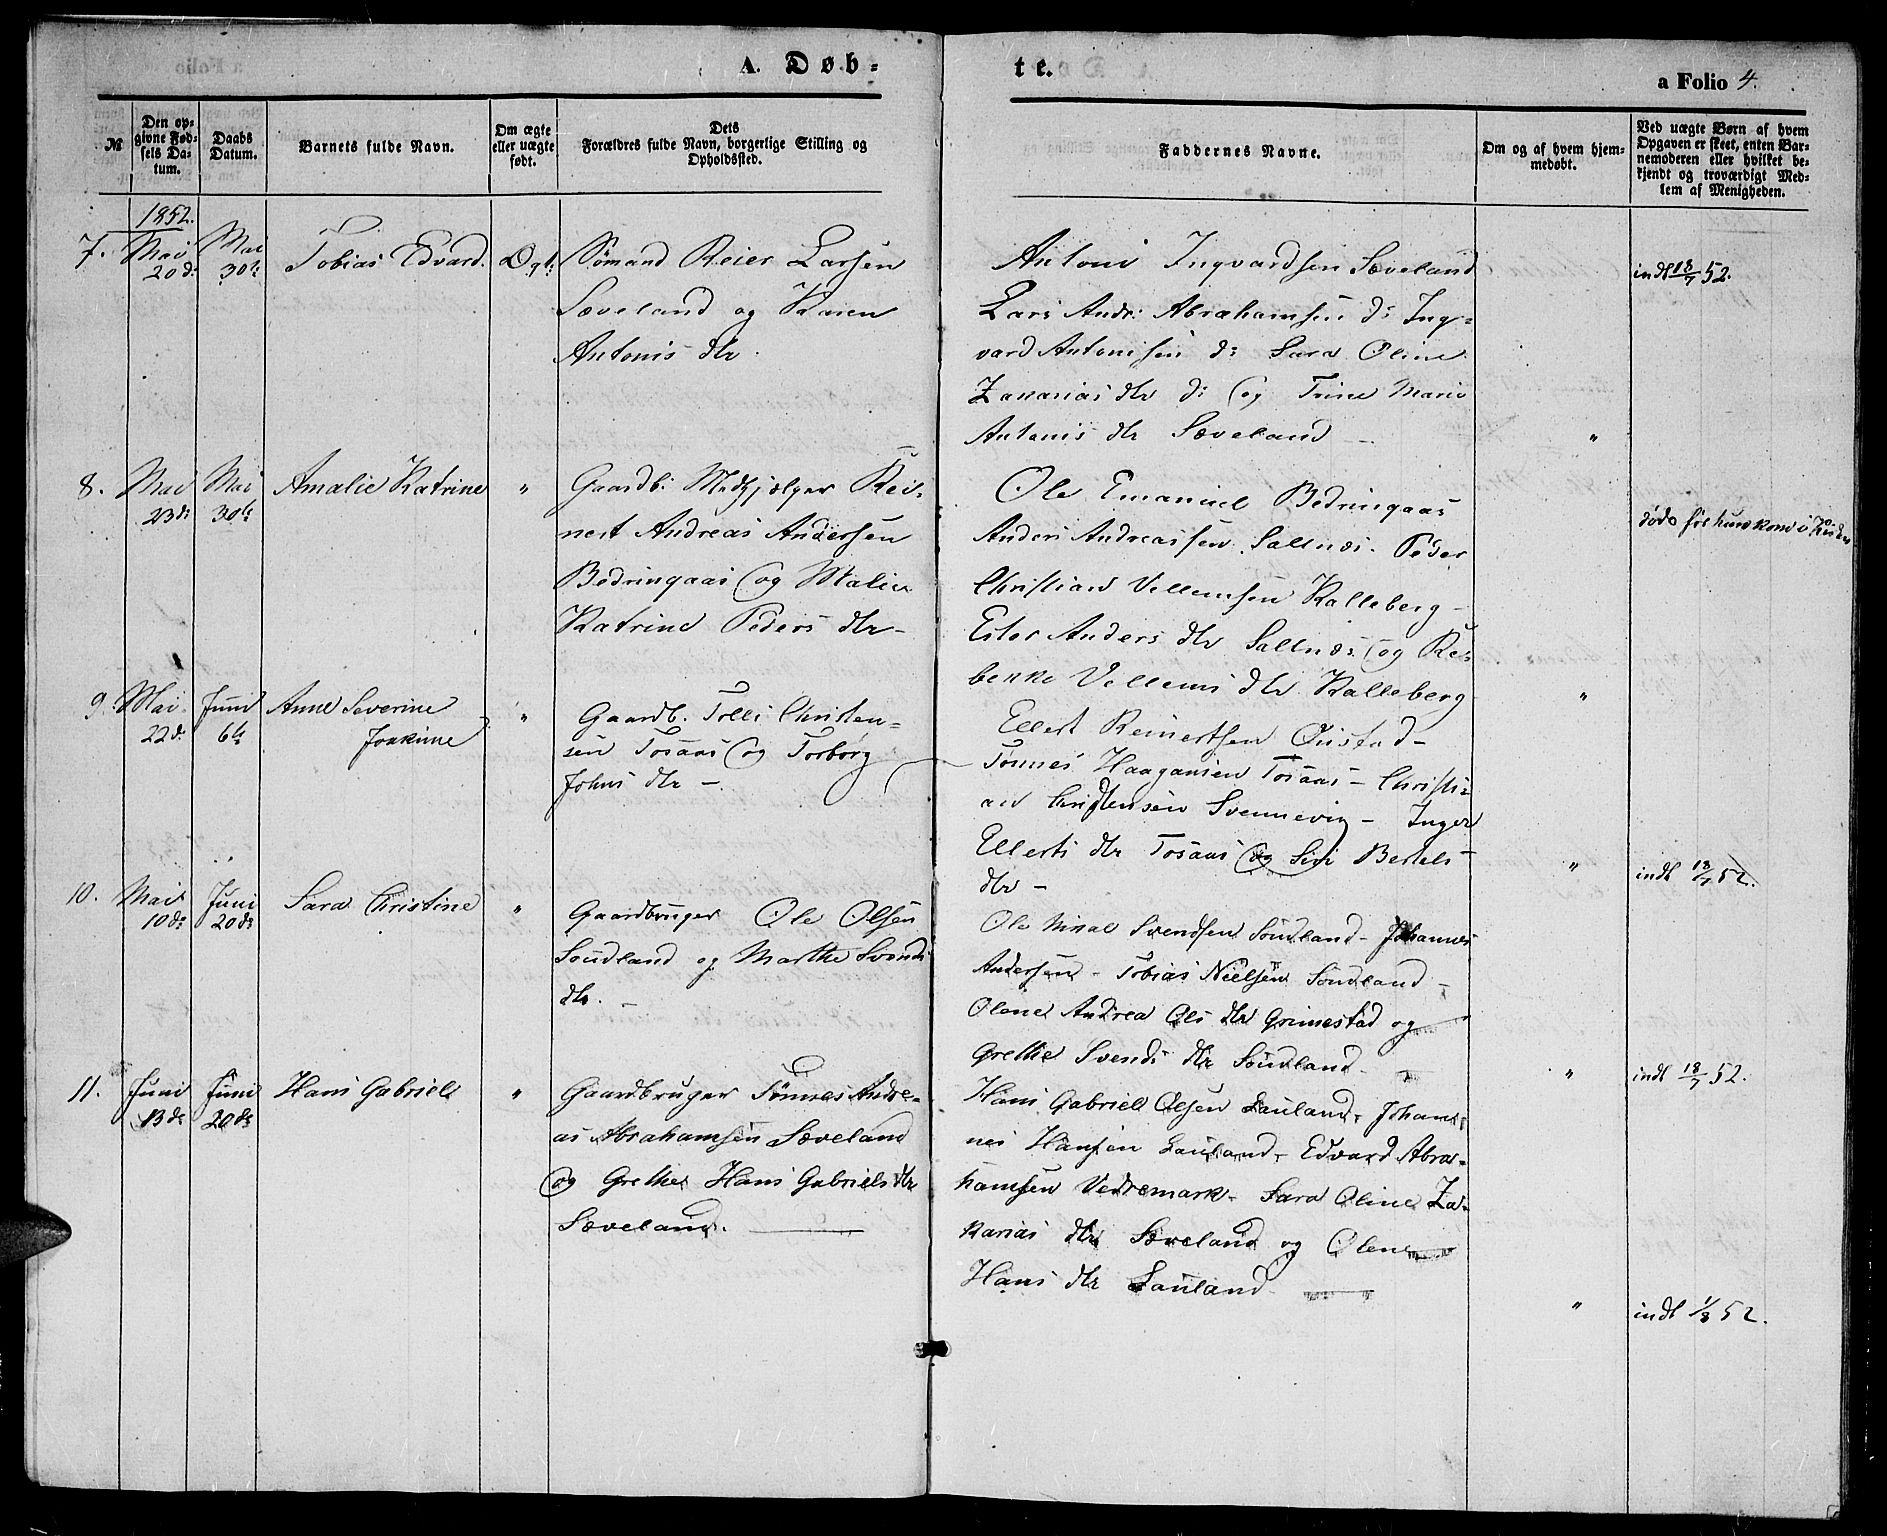 A. Døb=
te.
a Folio 4.
№
Den op=
givne Fød=
sels Da=
tum.
Daabs
Datum.
Barnets fulde Navn.
Om ægte
eller uægte
født.
Dets
Forældres fulde Navn, borgerlige Stilling og
Opholdssted.
Faddernes Navne.
Om og af hvem hjem=
medøbt.
Ved uægte Børn af hvem
Opgaven er skeet, enten Bar=
nemoderen eller hvilket be=
kjendt og troværdigt Med=
lem af Menigheden.
1852.
7. Mai
20d:
Mai
30te
Tobias Edvard.
Sømand Reier Larsen
Sæveland og Karen
Antonis dtr.
Antoni Ingvardsen Sæveland
Lars Andr: Abrahamsen d: Ing=
vard Antonisen d: Sara Oline
Zakarias dtr d: og Trine Marie
Antonis dtr Sæveland —
"
indt 18/7 52.
8. Mai
23d:
Mai
30te
Amalie Katrine
"
Gaardb: Medhjælper Rei=
nert Andreas Andersen
Bedringaas og Malin
Katrine Peders dtr —
Ole Emanuel Bedringaas
Anders Andreassen Sallnæs. Peder
Christian Vellemsen Kalleberg —
Ester Anders dtr Sallnæs og Re=
bekke Vellems dtr Kalleberg
"
døde før hun kom i Kirken
9. Mai
22d.
Juni
6te
Anne Severine
Joakime
"
Gaardb. Tolli Christen=
sen Tosaas og Torborg
Johns dtr —
Ellert Reinertsen Onstad —
Tønnes Haagansen Tosaas — Christi=
an Christensen Svennevig — Inger
Ellerts dtr Tosaas og Siri Bertels
dtr —
"
indt 18/7 52.
10. Mai
10d:
Juni
20de
Sara Christine
"
Gaardbruger Ole Olsen
Søudland og Marthe Svends
dtr. —
Ole Svendsen Søudland — Johannes
Andersen — Tobias Nielsen Søudland —
Olene Andrea Ols dtr Grimestad og
Grethe Svends dtr Søudland —
"
indt 18/7 52.
11. Juni
13de
Juni
20de
Hans Gabriel
"
Gaardbruger Tønnes Andre=
as Abrahamsen Sæveland
og Grethe Hans Gabriels dtr
Sæveland. —
Hans Gabriel Olsen Lauland, Johan=
nes Hansen Lauland — Edvard Abra=
hamsen Vedremark — Sara Oline Za=
karias dtr Sæveland og Olene
Hans dtr Lauland —
"
indt 1/8 52.